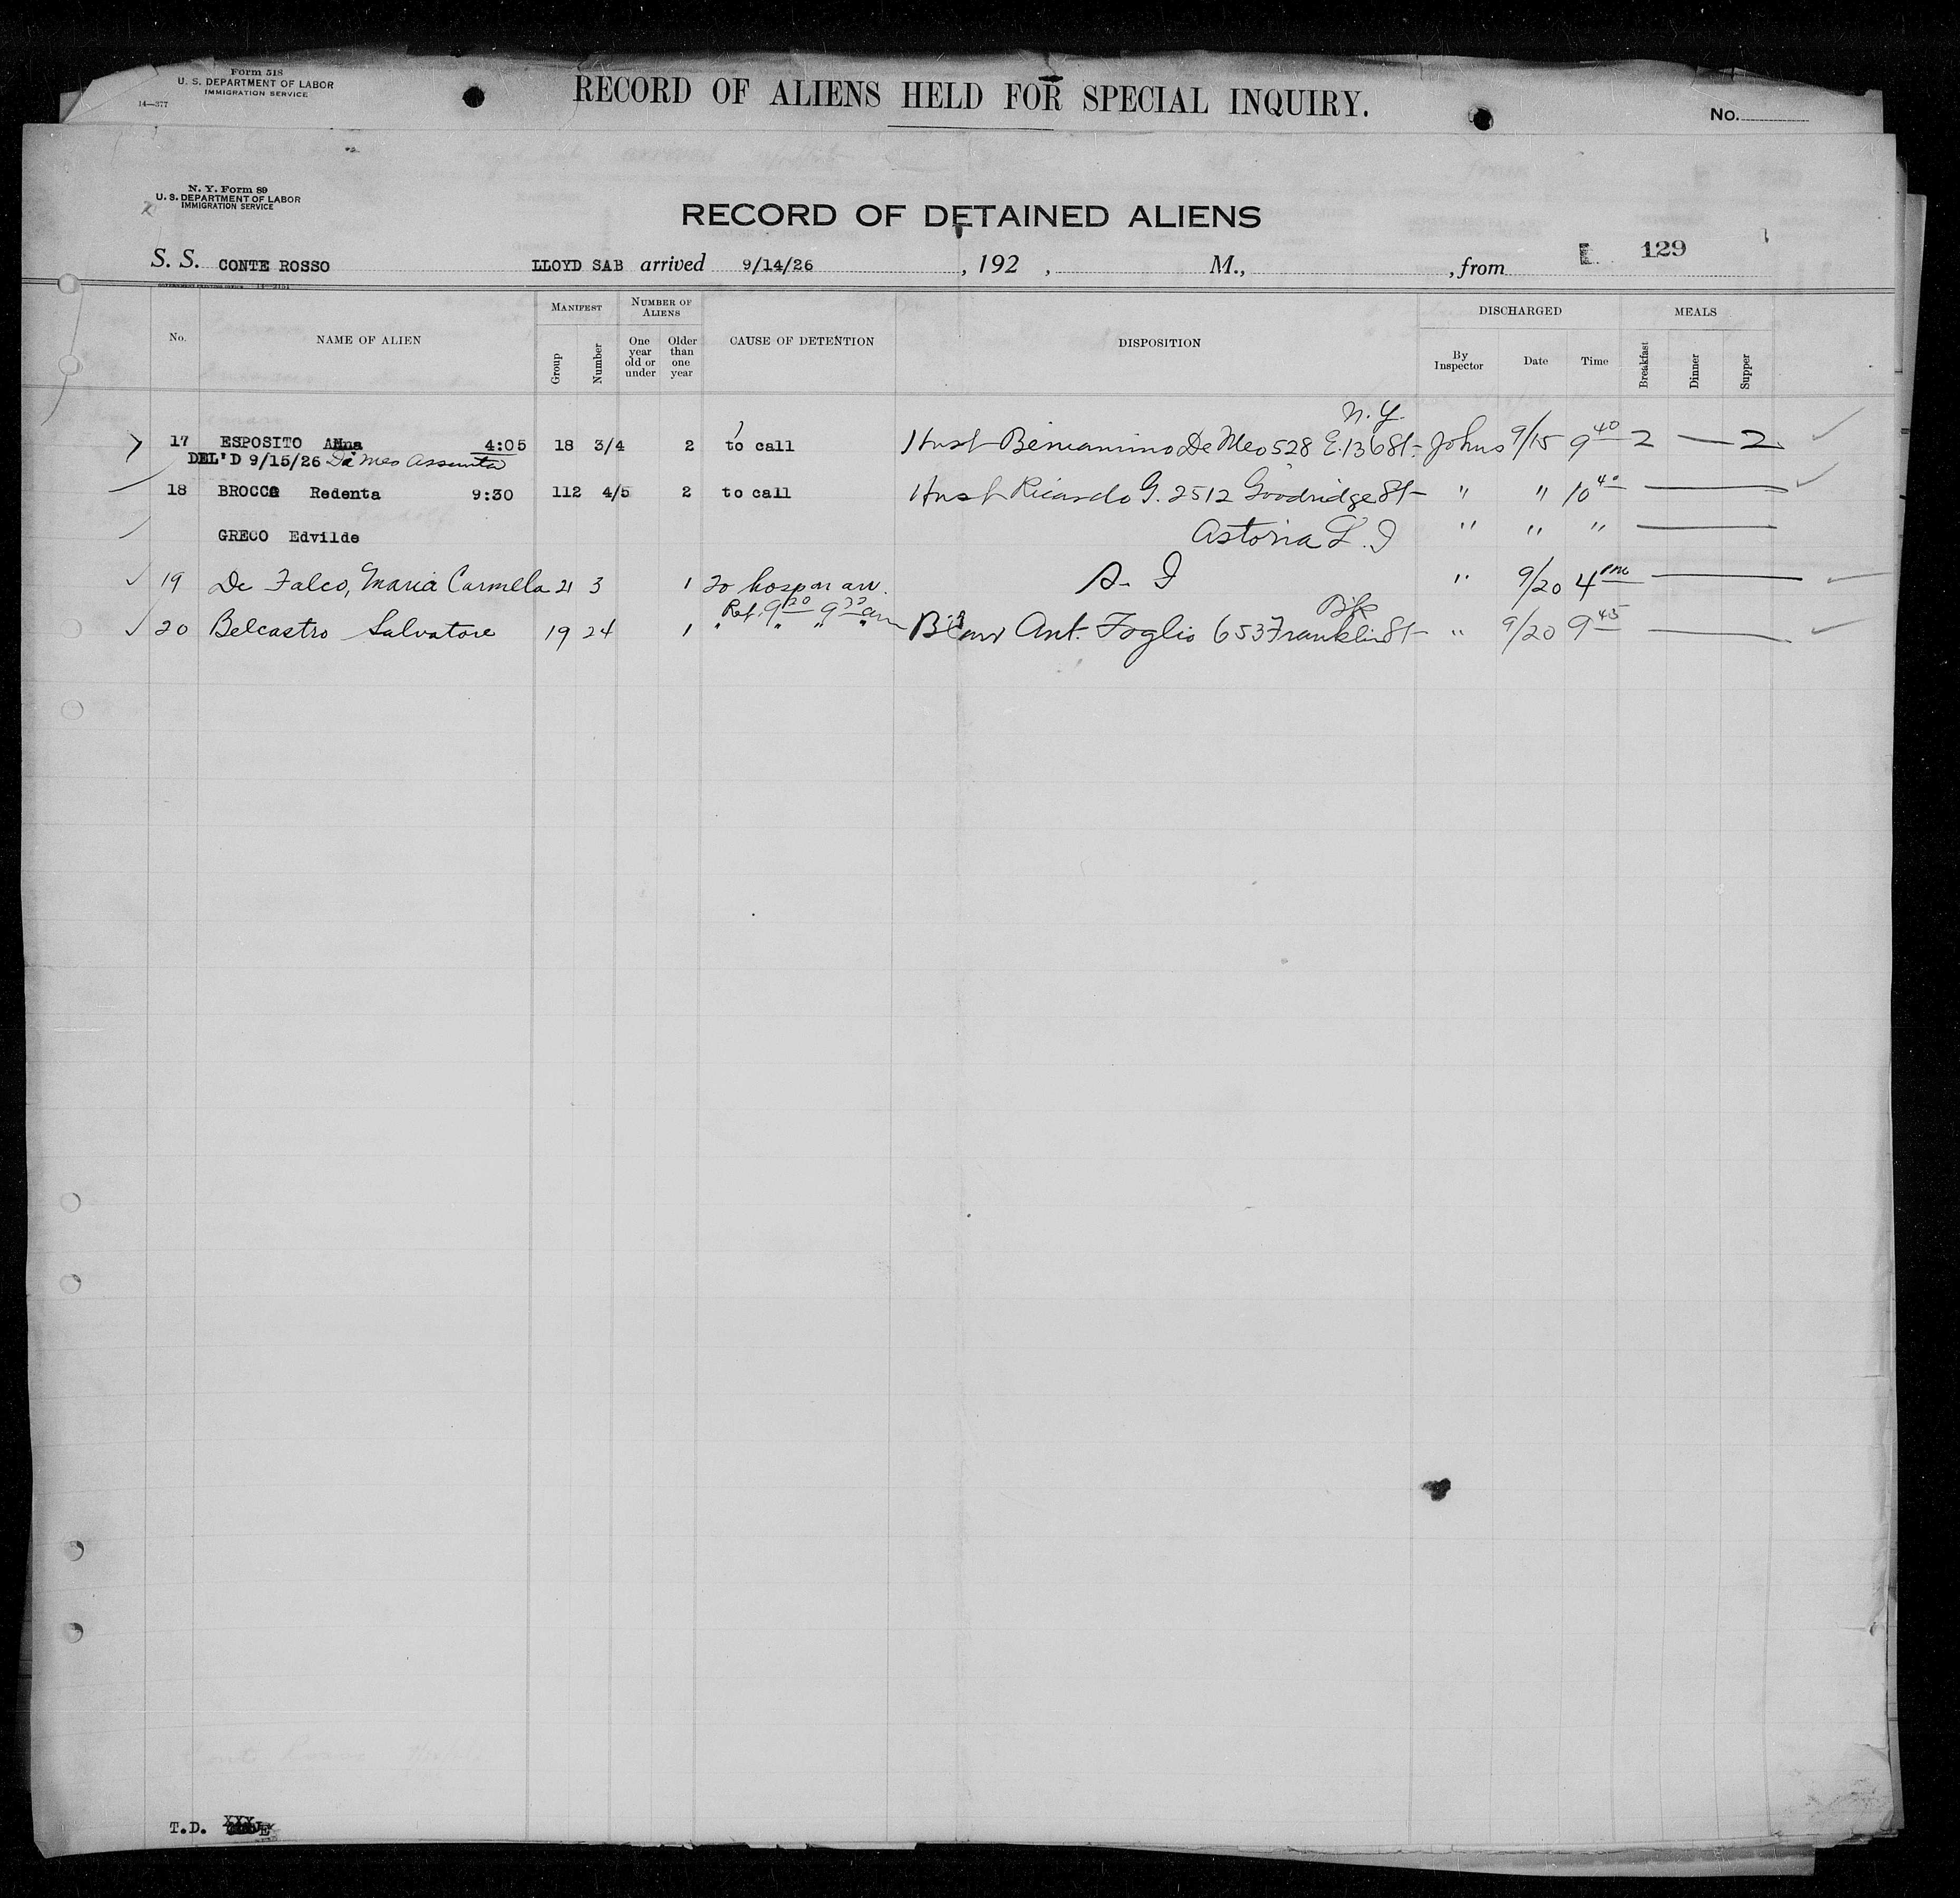 Form 518
U. S. DEPARTMENT OF LABOR
IMMIGRATION SERVICE
14—377
RECORD OF ALIENS HELD FOR SPECIAL INQUIRY.
No.
N. Y. Form 89
U. S. DEPARTMENT OF LABOR
IMMIGRATION SERVICE
RECORD OF DETAINED ALIENS
S. S. CONTE ROSSO LLOYD SAB arrived 9/14/26 , 192 , M., , from 129
GOVERNMENT PRINTING OFFICE
No. NAME OF ALIEN MANIFEST Group Number NUMBER OF ALIENS One year old or under Older than one year CAUSE OF DETENTION DISPOSITION DISCHARGED By Inspector Date Time MEALS Breakfast Dinner Supper
N. Y.
17 ESPOSITO Anna 4:05 18 3/4 2 to call Husb Beniamino De Meo 528 E. 136 St - Johns 9/15 9 40 2 — 2
DEL'D 9/15/26 De Meo Assunta
18 BROCCA Redenta 9:30 112 4/5 2 to call Husb Ricardo G. 2512 Goodridge St - " " 10 40
GRECO Edvilde Astoria L. I " " "
19 De Falco, Maria Carmela 21 3 1 To hosp on arr. S. I " 9/20 4 pm
Ret. 9/20 9 30 am Bk
20 Belcastro Salvatore 19 24 1 " " " " Ant. Foglio 653 Franklin St - " 9/20 9 45
T.D.